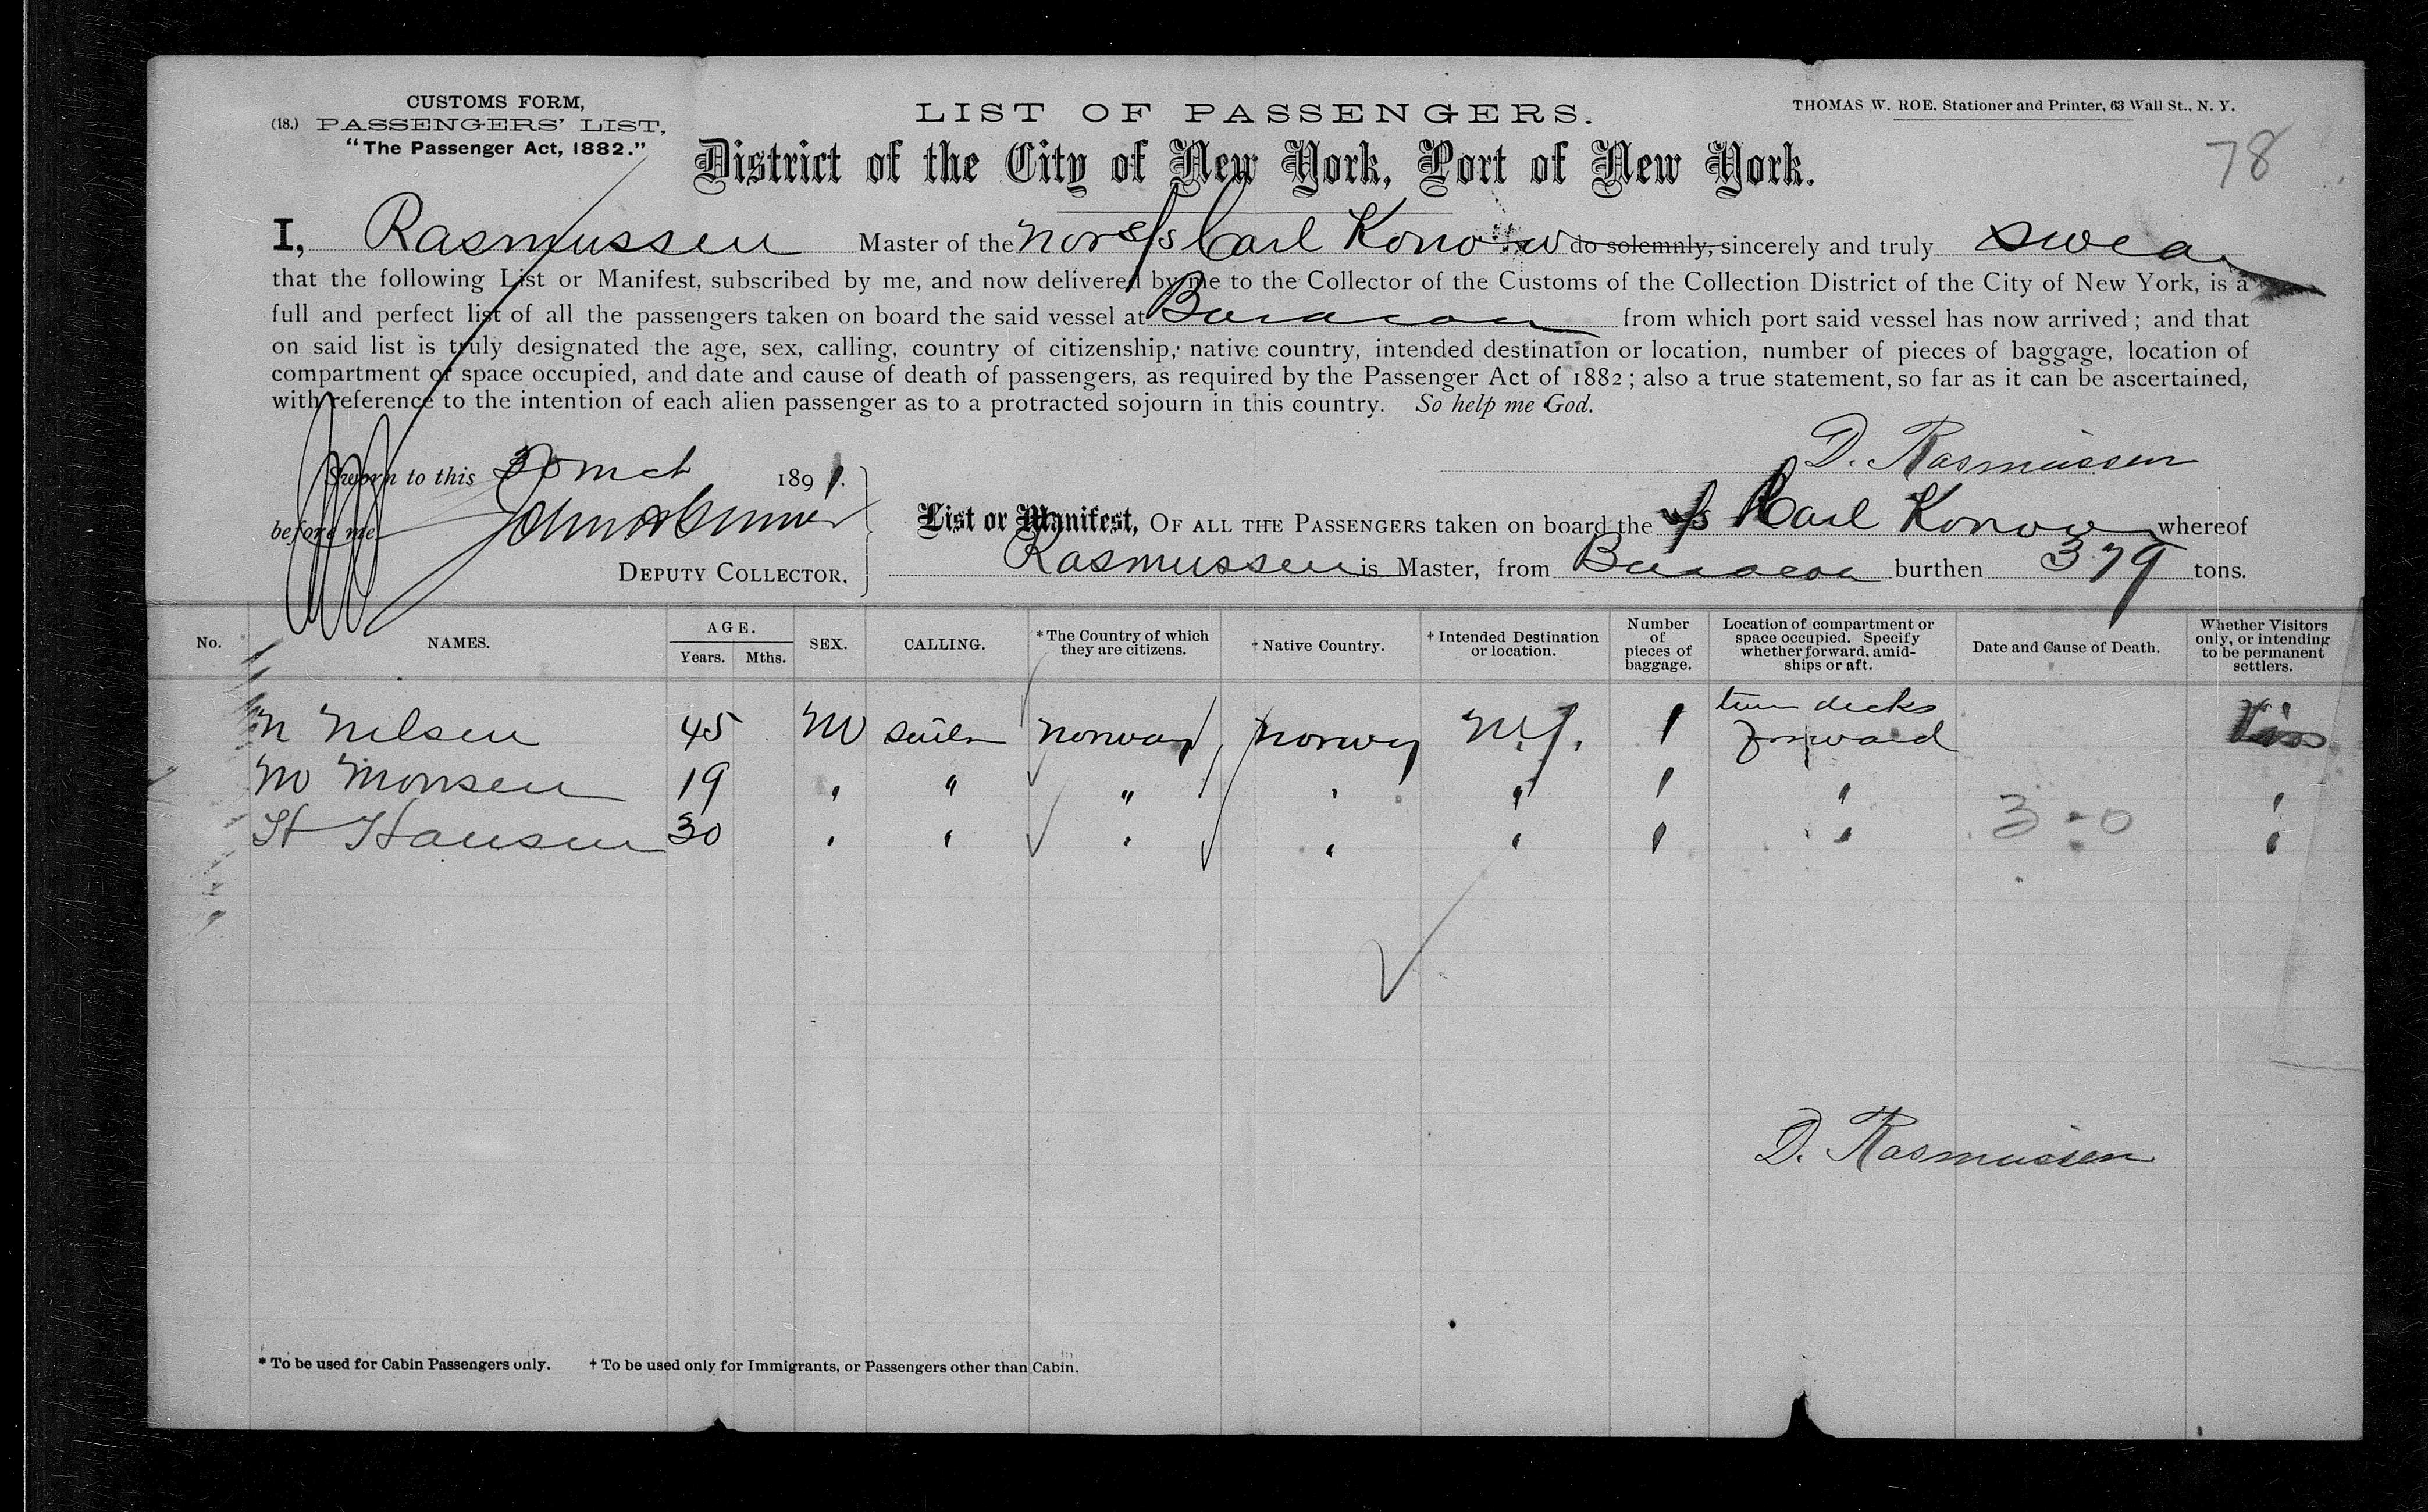 CUSTOMS FORM,
(18.) PASSENGERS' LIST,
"The Passenger Act, 1882."
LIST OF PASSENGERS.
THOMAS W. ROE. Stationer and Printer, 63 Wall St., N. Y.
District of the City of New York, Port of New York.
78
I, Rasmussen Master of the Nor S/S Carl Konow do solemnly, sincerely and truly swear
that the following List or Manifest, subscribed by me, and now delivered by me to the Collector of the Customs of the Collection District of the City of New York, is a
full and perfect list of all the passengers taken on board the said vessel at Baracoa from which port said vessel has now arrived; and that
on said list is truly designated the age, sex, calling, country of citizenship, native country, intended destination or location, number of pieces of baggage, location of
compartment or space occupied, and date and cause of death of passengers, as required by the Passenger Act of 1882; also a true statement, so far as it can be ascertained,
with reference to the intention of each alien passenger as to a protracted sojourn in this country. So help me God.
D. Rasmussen
Sworn to this 30 Mch 1891.
before me
DEPUTY COLLECTOR.
List or Manifest, OF ALL THE PASSENGERS taken on board the S/S Karl Konow whereof
Rasmussen is Master, from Baracoa burthen 379 tons.
No. NAMES. AGE. Years. Mths. SEX. CALLING. *The Country of which they are citizens. †Native Country. †Intended Destination or location. Number of pieces of baggage. Location of compartment or space occupied. Specify whether forward, amidships or aft. Date and Cause of Death. Whether Visitors only, or intending to be permanent settlers.
N Nelsen 45 M sailor Norway Norway N.Y. 1 twn decks forward
M Monsen 19 " " " " " 1 " "
H Hansen 30 " " " " " 1 " "
3-0
D. Rasmussen
* To be used for Cabin Passengers only. † To be used only for Immigrants, or Passengers other than Cabin.